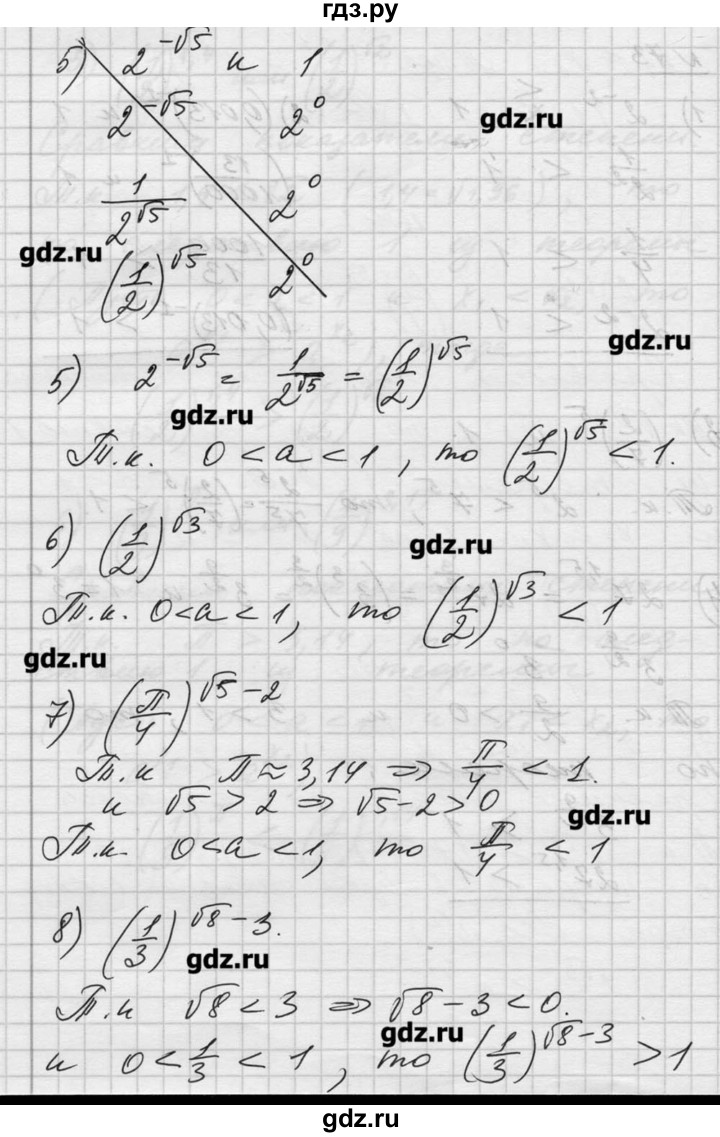 гдз.ру
5) 2^{-√5} и 1
2^{-√5} 2^0
gdz.ru
1/2^{√5} 2^0
gdz.ru
(1/2)^{√5} 2^0
gdz.ru
5) 2^{-√5} = 1/2^{√5} = (1/2)^{√5}
gdz.ru
Т.к. 0 < a < 1, то (1/2)^{√5} < 1.
6) (1/2)^{√3}
gdz.ru
Т.к. 0 < a < 1, то (1/2)^{√3} < 1
gdz.ru
7) (π/4)^{√5-2}
Т.к π ≈ 3,14 ⇒ π/4 < 1.
и √5 > 2 ⇒ √5-2 > 0
gdz.ru
Т.к. 0 < a < 1, то π/4 < 1
8) (1/3)^{√8-3}.
gdz.ru
Т.к √8 < 3 ⇒ √8-3 < 0.
gdz.ru
и 0 < 1/3 < 1, то (1/3)^{√8-3} > 1
gdz.ru